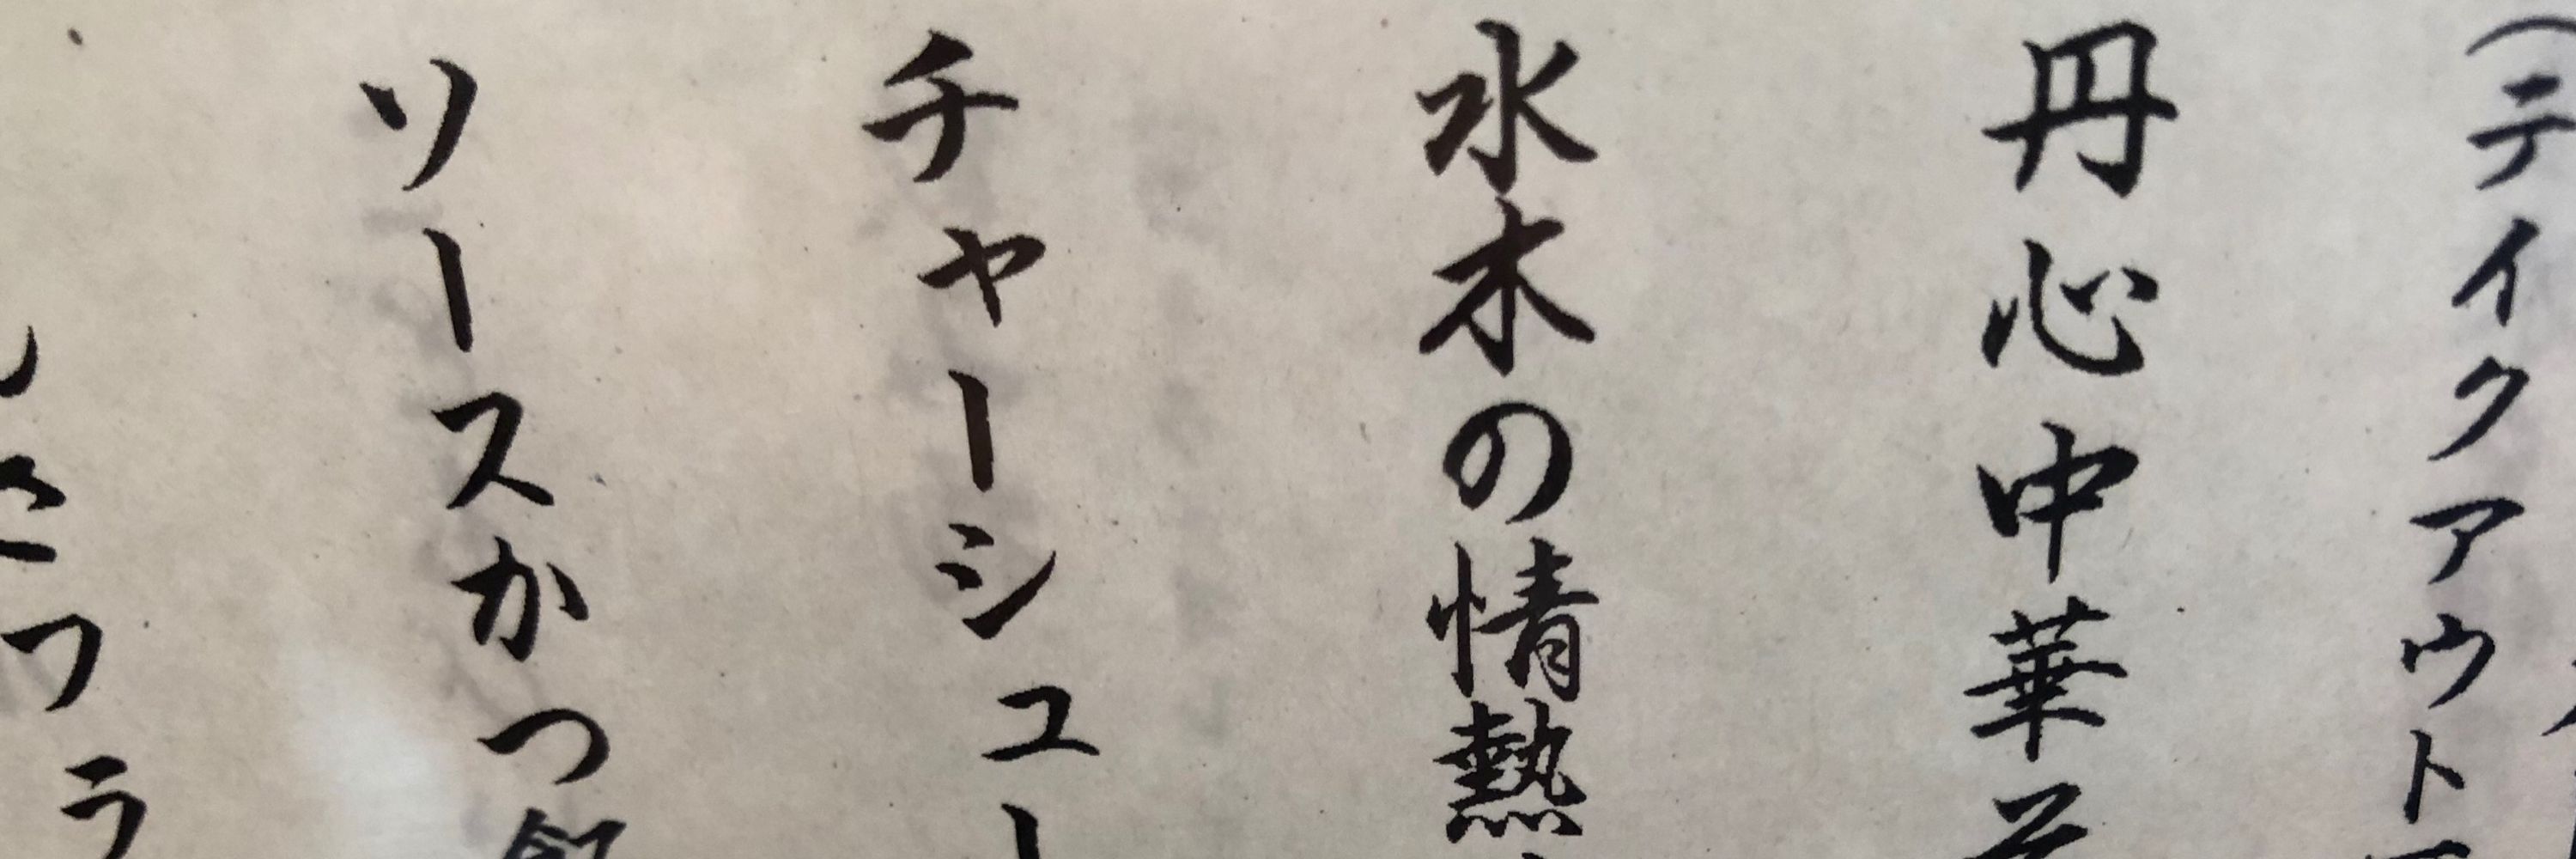 (テイクアウト
丹心中華そ
水木の情熱
チャーシュー
ソースかつ